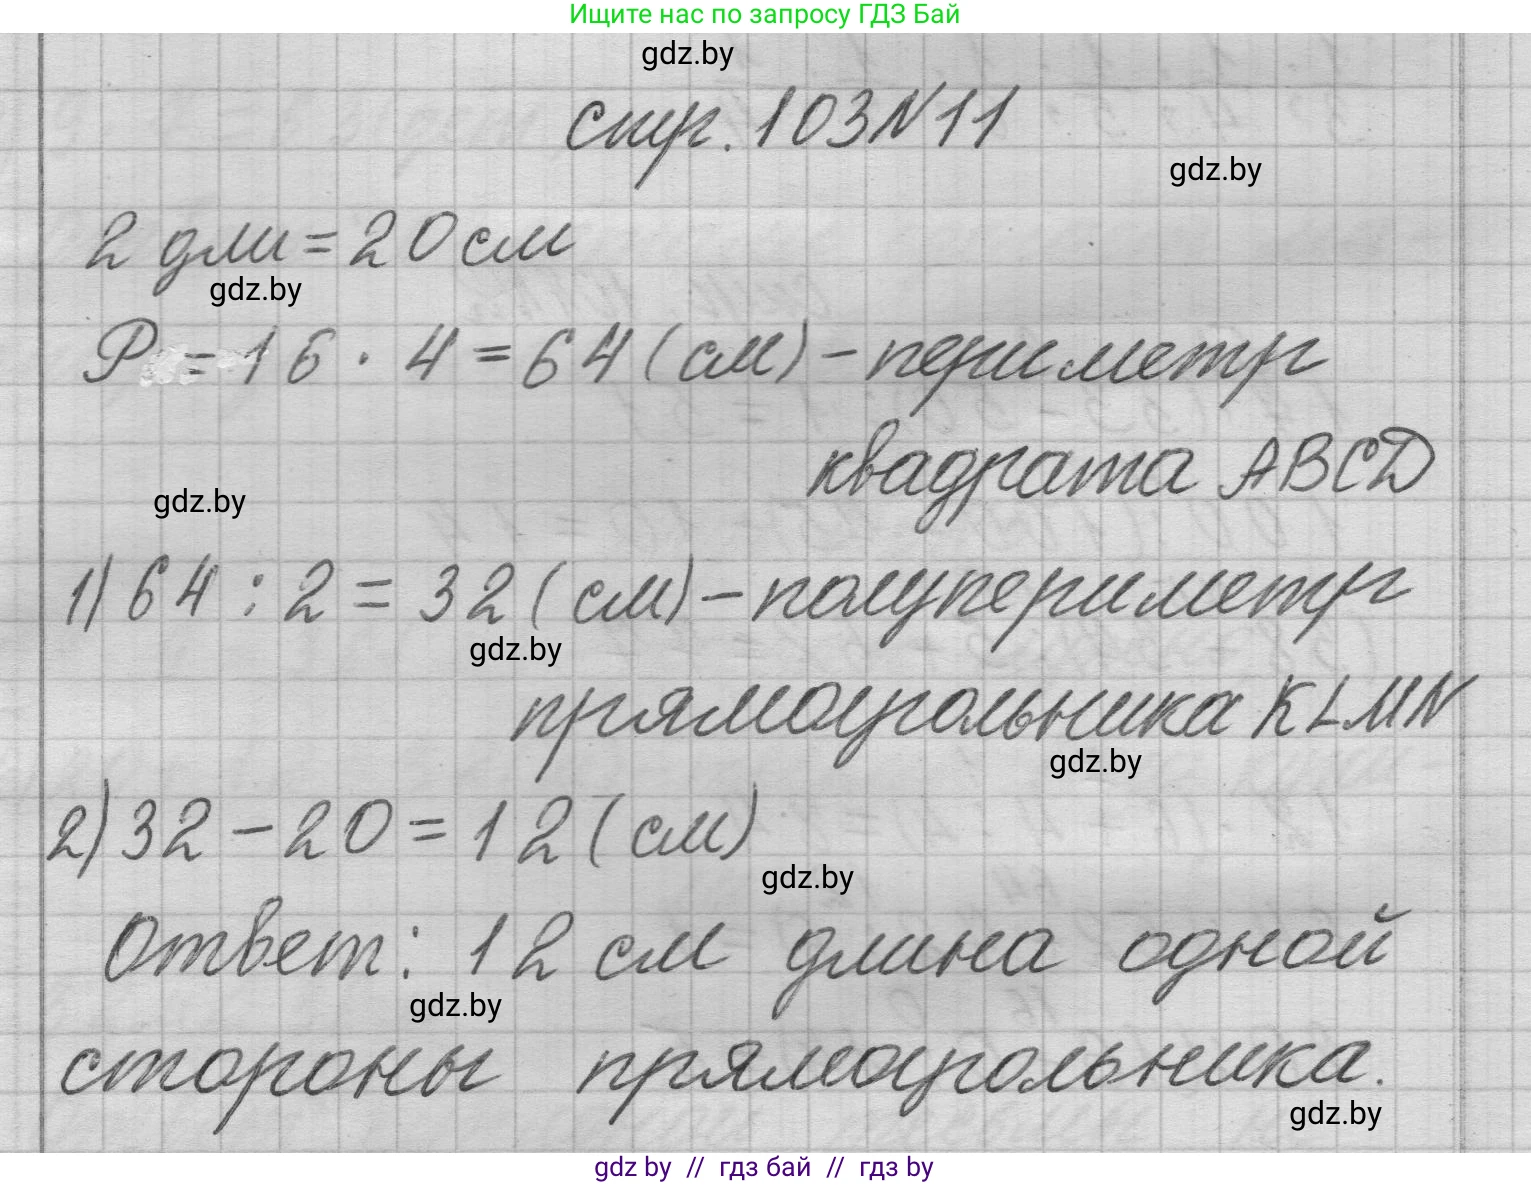 Ищите нас по запросу ГДЗ Бай
gdz.by
стр. 103 N 11
gdz.by
2 дм = 20 см
gdz.by
P = 16 · 4 = 64 (см) - периметр
квадрата ABCD
gdz.by
1) 64 : 2 = 32 (см) - полупериметр
gdz.by
прямоугольника KLMN
gdz.by
2) 32 - 20 = 12 (см)
gdz.by
Ответ: 12 см длина одной
gdz.by
стороны прямоугольника.
gdz.by
gdz by // гдз бай // гдз by